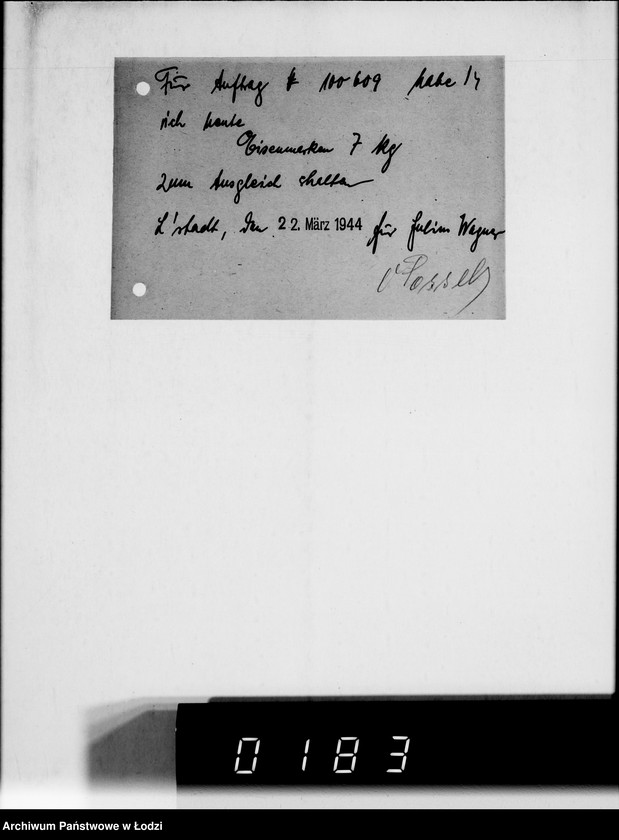 Für Auftrag 100609 habe
ich heute
Eisenmarken 7 kg
zum Ausgleich erhalten
L'stadt, den 22. März 1944 für Julius Wagner
0183
Archiwum Państwowe w Łodzi